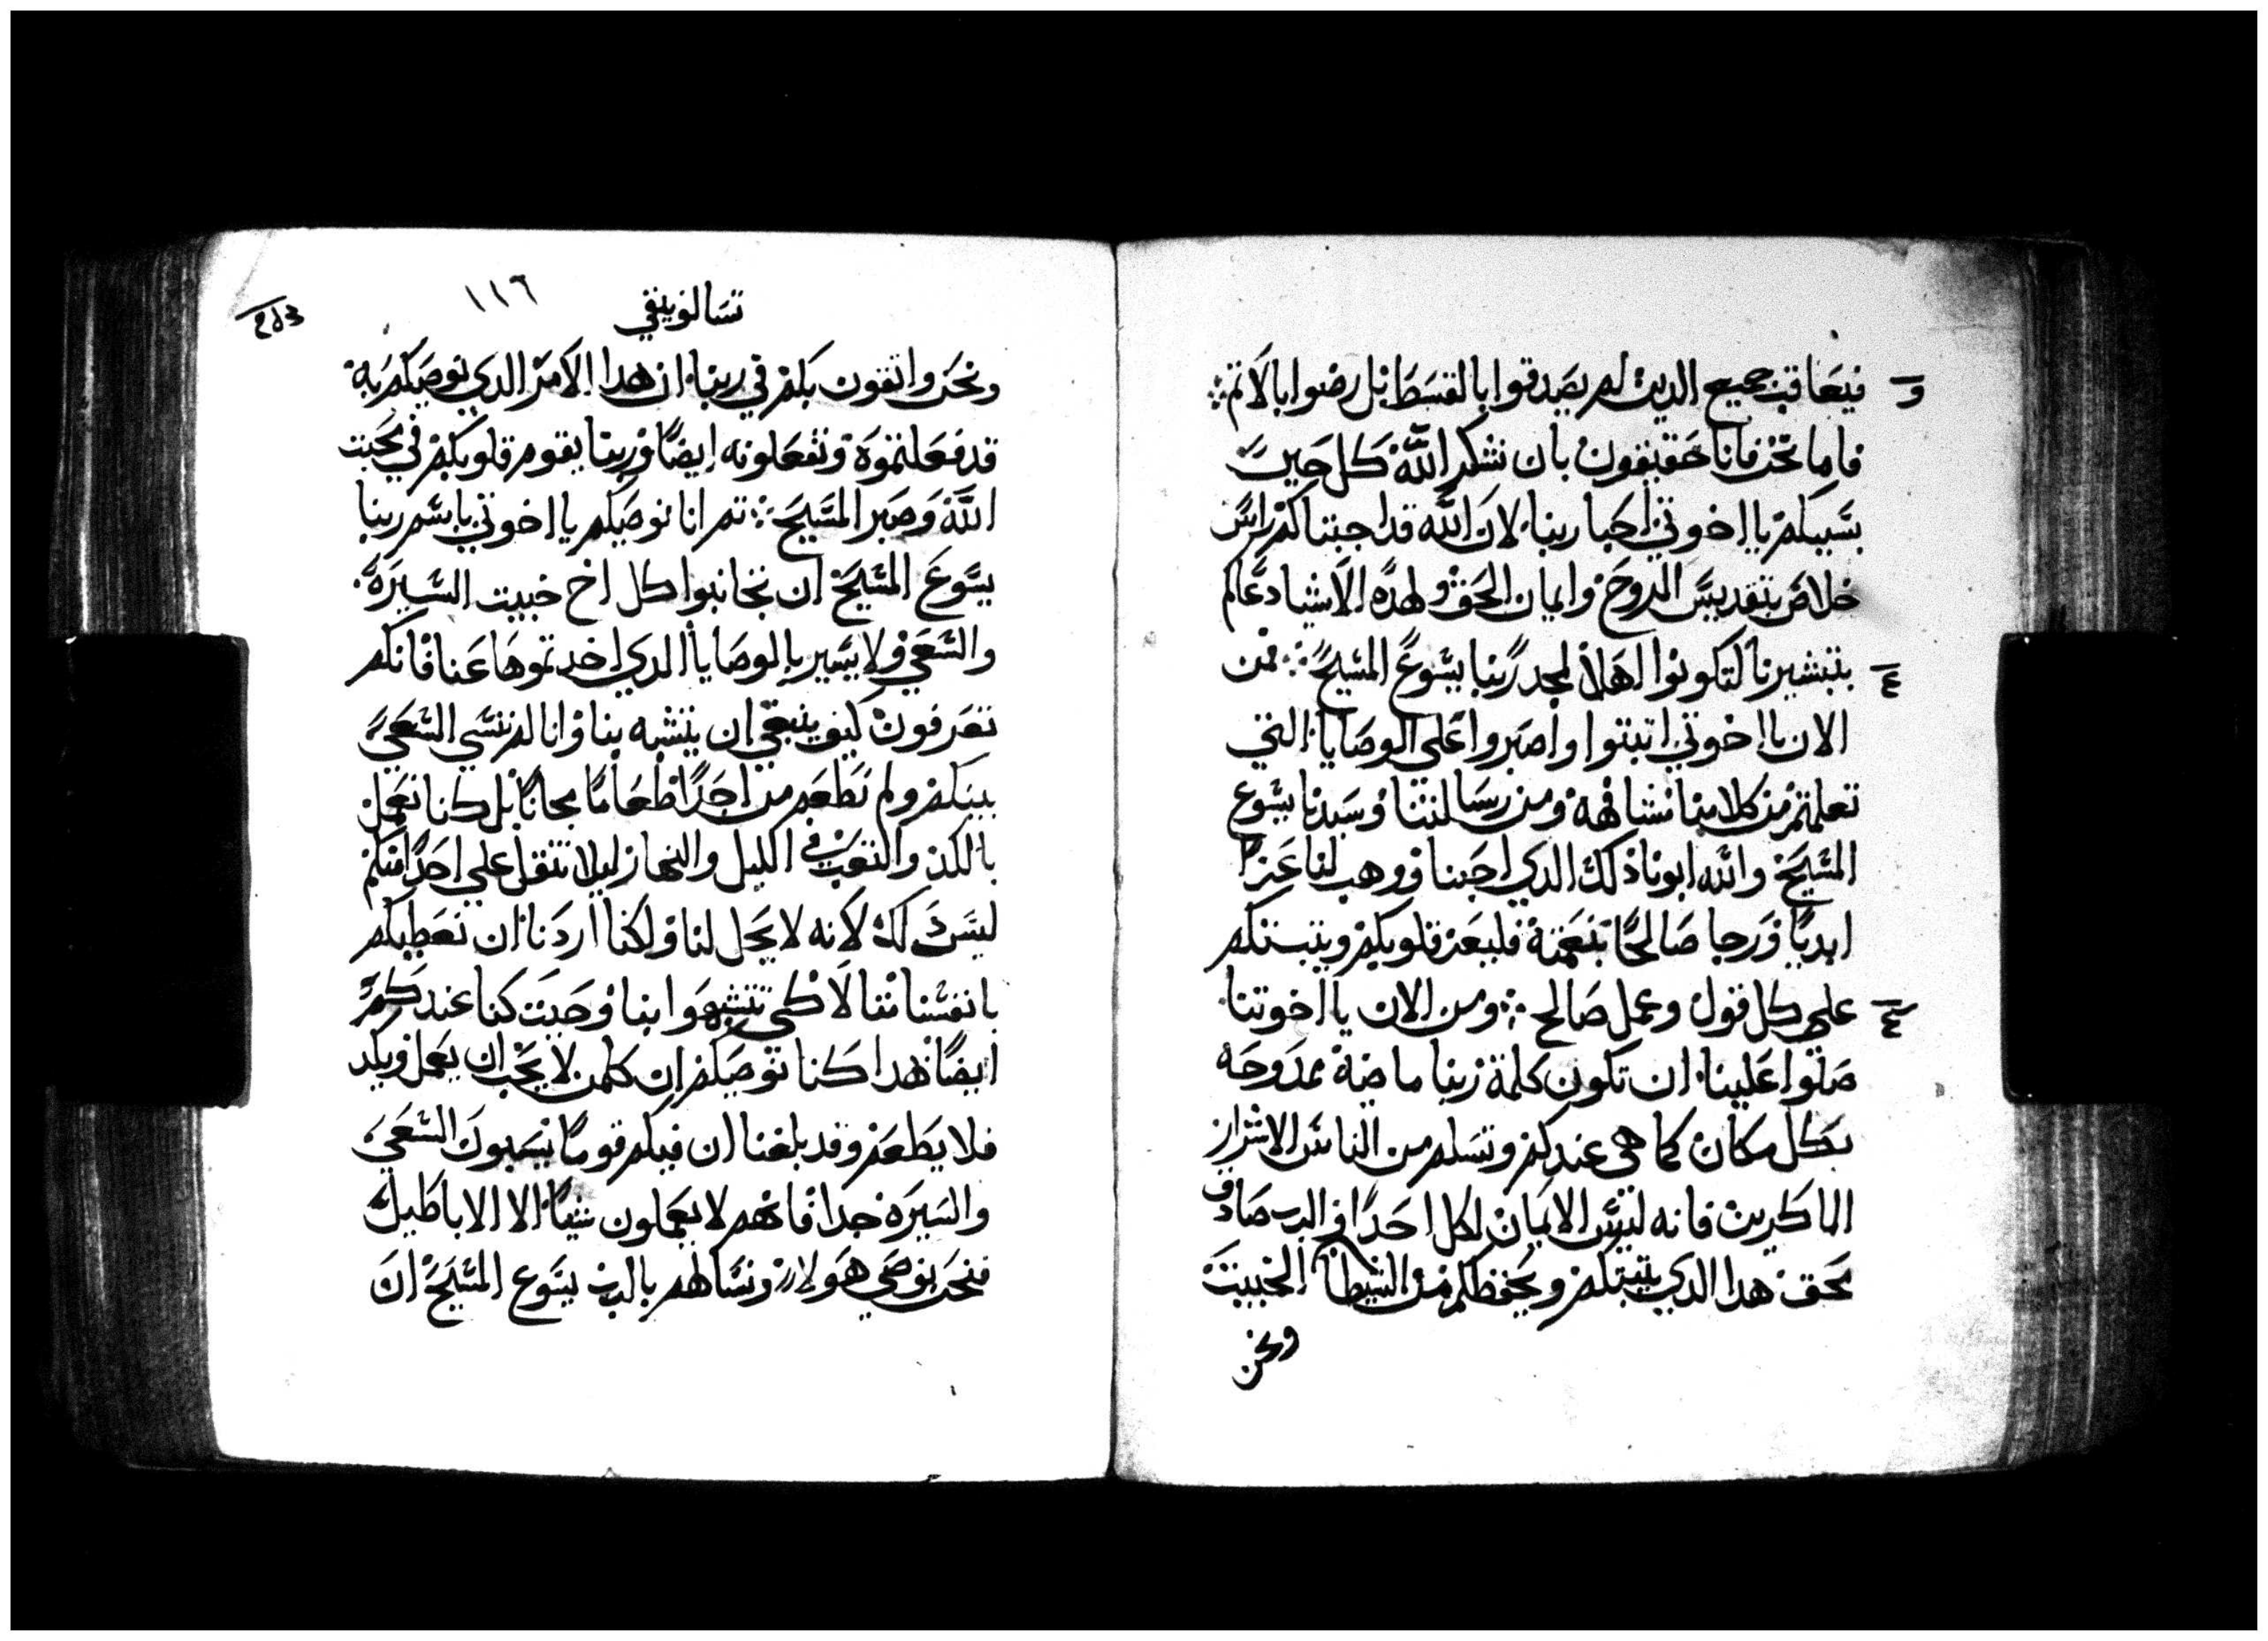 فيعاقب جميع الدين لم يصدقوا بالقسط بل رضوا بالاتم
فاما نحن فانا حقيقون بان نشكر الله كل حين
بسببكم يا اخوتي احبا ربنا لان الله قد اجتباكم راس
خلاص بتقديس الروح وايمان الحق ولهده الاشيا دعاكم
بتبشيرنا لتكونوا اهلا لمجد ربنا يسوع المسيح فمن
الان يا اخوتي اتبتوا واصبروا على الوصايا التي
تعلمتم من كلامنا مشافهة ومن رسالتنا وسيدنا يسوع
المسيح والله ابونا ذلك الدي احبنا ووهب لنا عزا
ابديا ورجا صالحا بنعمته فليعز قلوبكم ويتبتكم
على كل قول وعمل صالح ومن الان يا اخوتنا
صلوا علينا ان تكون كلمة ربنا ماضية ممدوحه
بكل مكان كما هي عندكم وتسلم من الناس الاشرار
الماكرين فانه ليس الايمان لكل احدا والرب صادق
بحق هدا الدي يتبتكم ويحفظكم من الشيطان الخبيت
ونحن
تسالونيقي ١١٦
ونحن واتقون بكم في ربنا ان هدا الامر الدي نوصيكم به
قد فعلتموه وتفعلونه ايضا وربنا يقوم قلوبكم في محبت
الله وصبر المسيح تم انا نوصيكم يا اخوتي باسم ربنا
يسوع المسيح ان تجانبوا كل اخ خبيت السيره
والسعي ولا يسير بالوصايا الدي اخدتموها عنا فانكم
تعرفون كيف ينبغي ان يتشبه بنا وانا لم نسي السعي
بينكم ولم نطعم من احدا طعاما مجانا بل كنا نعمل
بالكد والتعب في الليل والنهار ليلا نتقل علي احدا منكم
ليس ذلك لانه لا يحل لنا ولكنا اردنا ان نعطيكم
بانفسنا متالا لكي تتشبهوا بنا وحيت كنا عندكم
ايضا هدا كنا نوصيكم ان كلمن لا يحب ان يعمل ويكد
فلا يطعم وقد بلغنا ان فيكم قوما يسيون السعي
والسيره جدا فانهم لا يعملون شيا الا الاباطيل
فنحن نوصي هولا ونسالهم بالرب يسوع المسيح ان